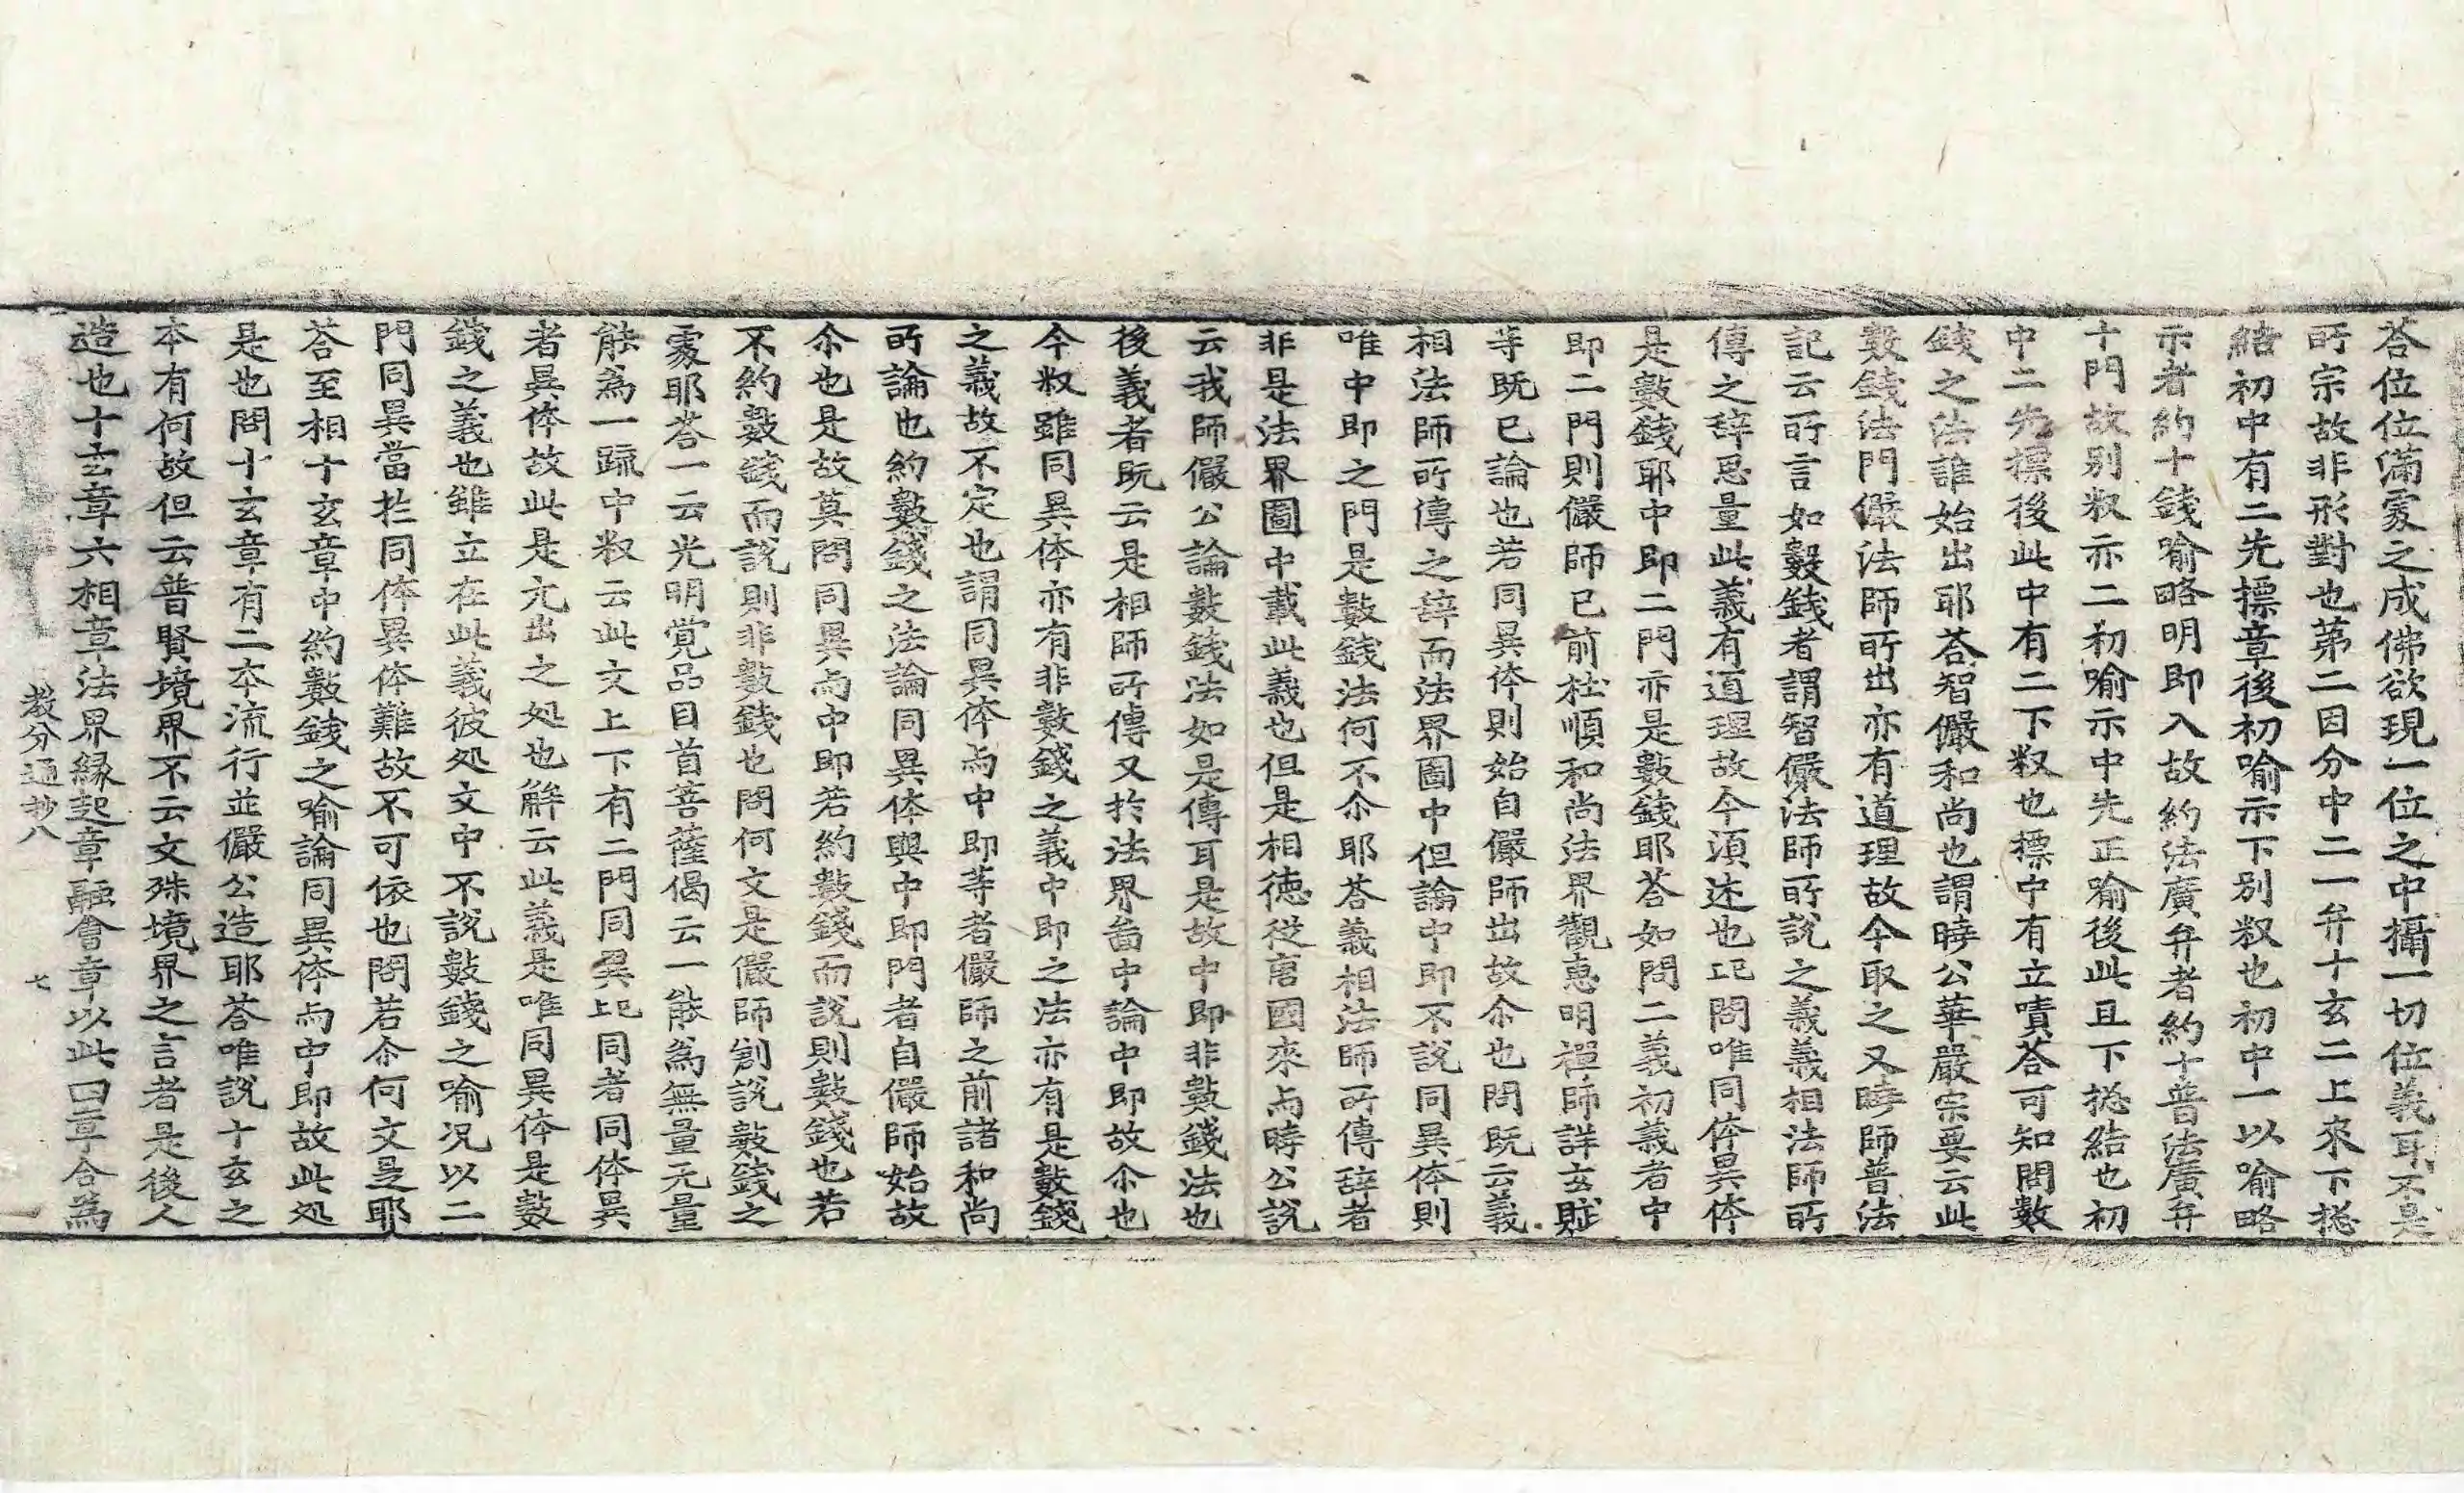 荅位位滿處之成佛欲現一位之中攝一切位義耳不是
所宗故非形對也第二因分中二一弁十玄二上來下捴
結初中有二先摽章後初喻示下別㪽也初中一以喻略
示者約十錢喻略明即入故約法廣弁者約十普法廣弁
十門故別㪽亦二初喻示中先正喻後此且下捴結也初
中二先摽後此中有二下㪽也摽中有立嘖荅可知問數
錢之法誰始出耶荅智儼和尚也謂曉公華嚴宗要云此
數錢法門儼法師所出亦有道理故今取之又曉師普法
記云所言如數錢者謂智儼法師所說之義義相法師所
傳之辞思量此義有道理故今湏述也記問唯同体異体
是數錢耶中即二門亦是數錢耶荅如問二義初義者中
即二門則儼師已前杜順和尚法界觀惠明禪師詳玄賦
等旣已論也若同異体則始自儼師出故尒也問旣云義
相法師所傳之辞而法界圖中但論中即不說同異体則
唯中即之門是數錢法何不尒耶荅義相法師所傳辞者
非是法界圖中載此義也但是相德從唐國來与時公說
云我師儼公論數錢法如是傳耳是故中即非數錢法也
後義者旣云是相師所傳又扵法界啚中論中即故尒也
今㪽雖同異体亦有非數錢之義中即之法亦有是數錢
之義故不定也謂同異体与中即等者儼師之前諸和尚
所論也約數錢之法論同異体與中即門者自儼師始故
尒也是故莫問同異与中即若約數錢而說則數錢也若
不約數錢而說則非數錢也問何文是儼師剏說數錢之
處耶荅一云光明覚品目首菩薩偈云一能為無量无量
能為一䟽中㪽云此文上下有二門同異記同者同体異
者異体故此是元出之処也觧云此義是唯同異体是數
錢之義也雖立在此義彼処文中不說數錢之喻况以二
門同異當扵同体異体難故不可依也問若尒何文是耶
荅至相十玄章中約數錢之喻論同異体与中即故此処
是也問十玄章有二本流行並儼公造耶荅唯說十玄之
本有何故但云普賢境界不云文殊境界之言者是後人
造也十玄章六相章法界縁起章融會章以此四章合為
教分通抄八　七